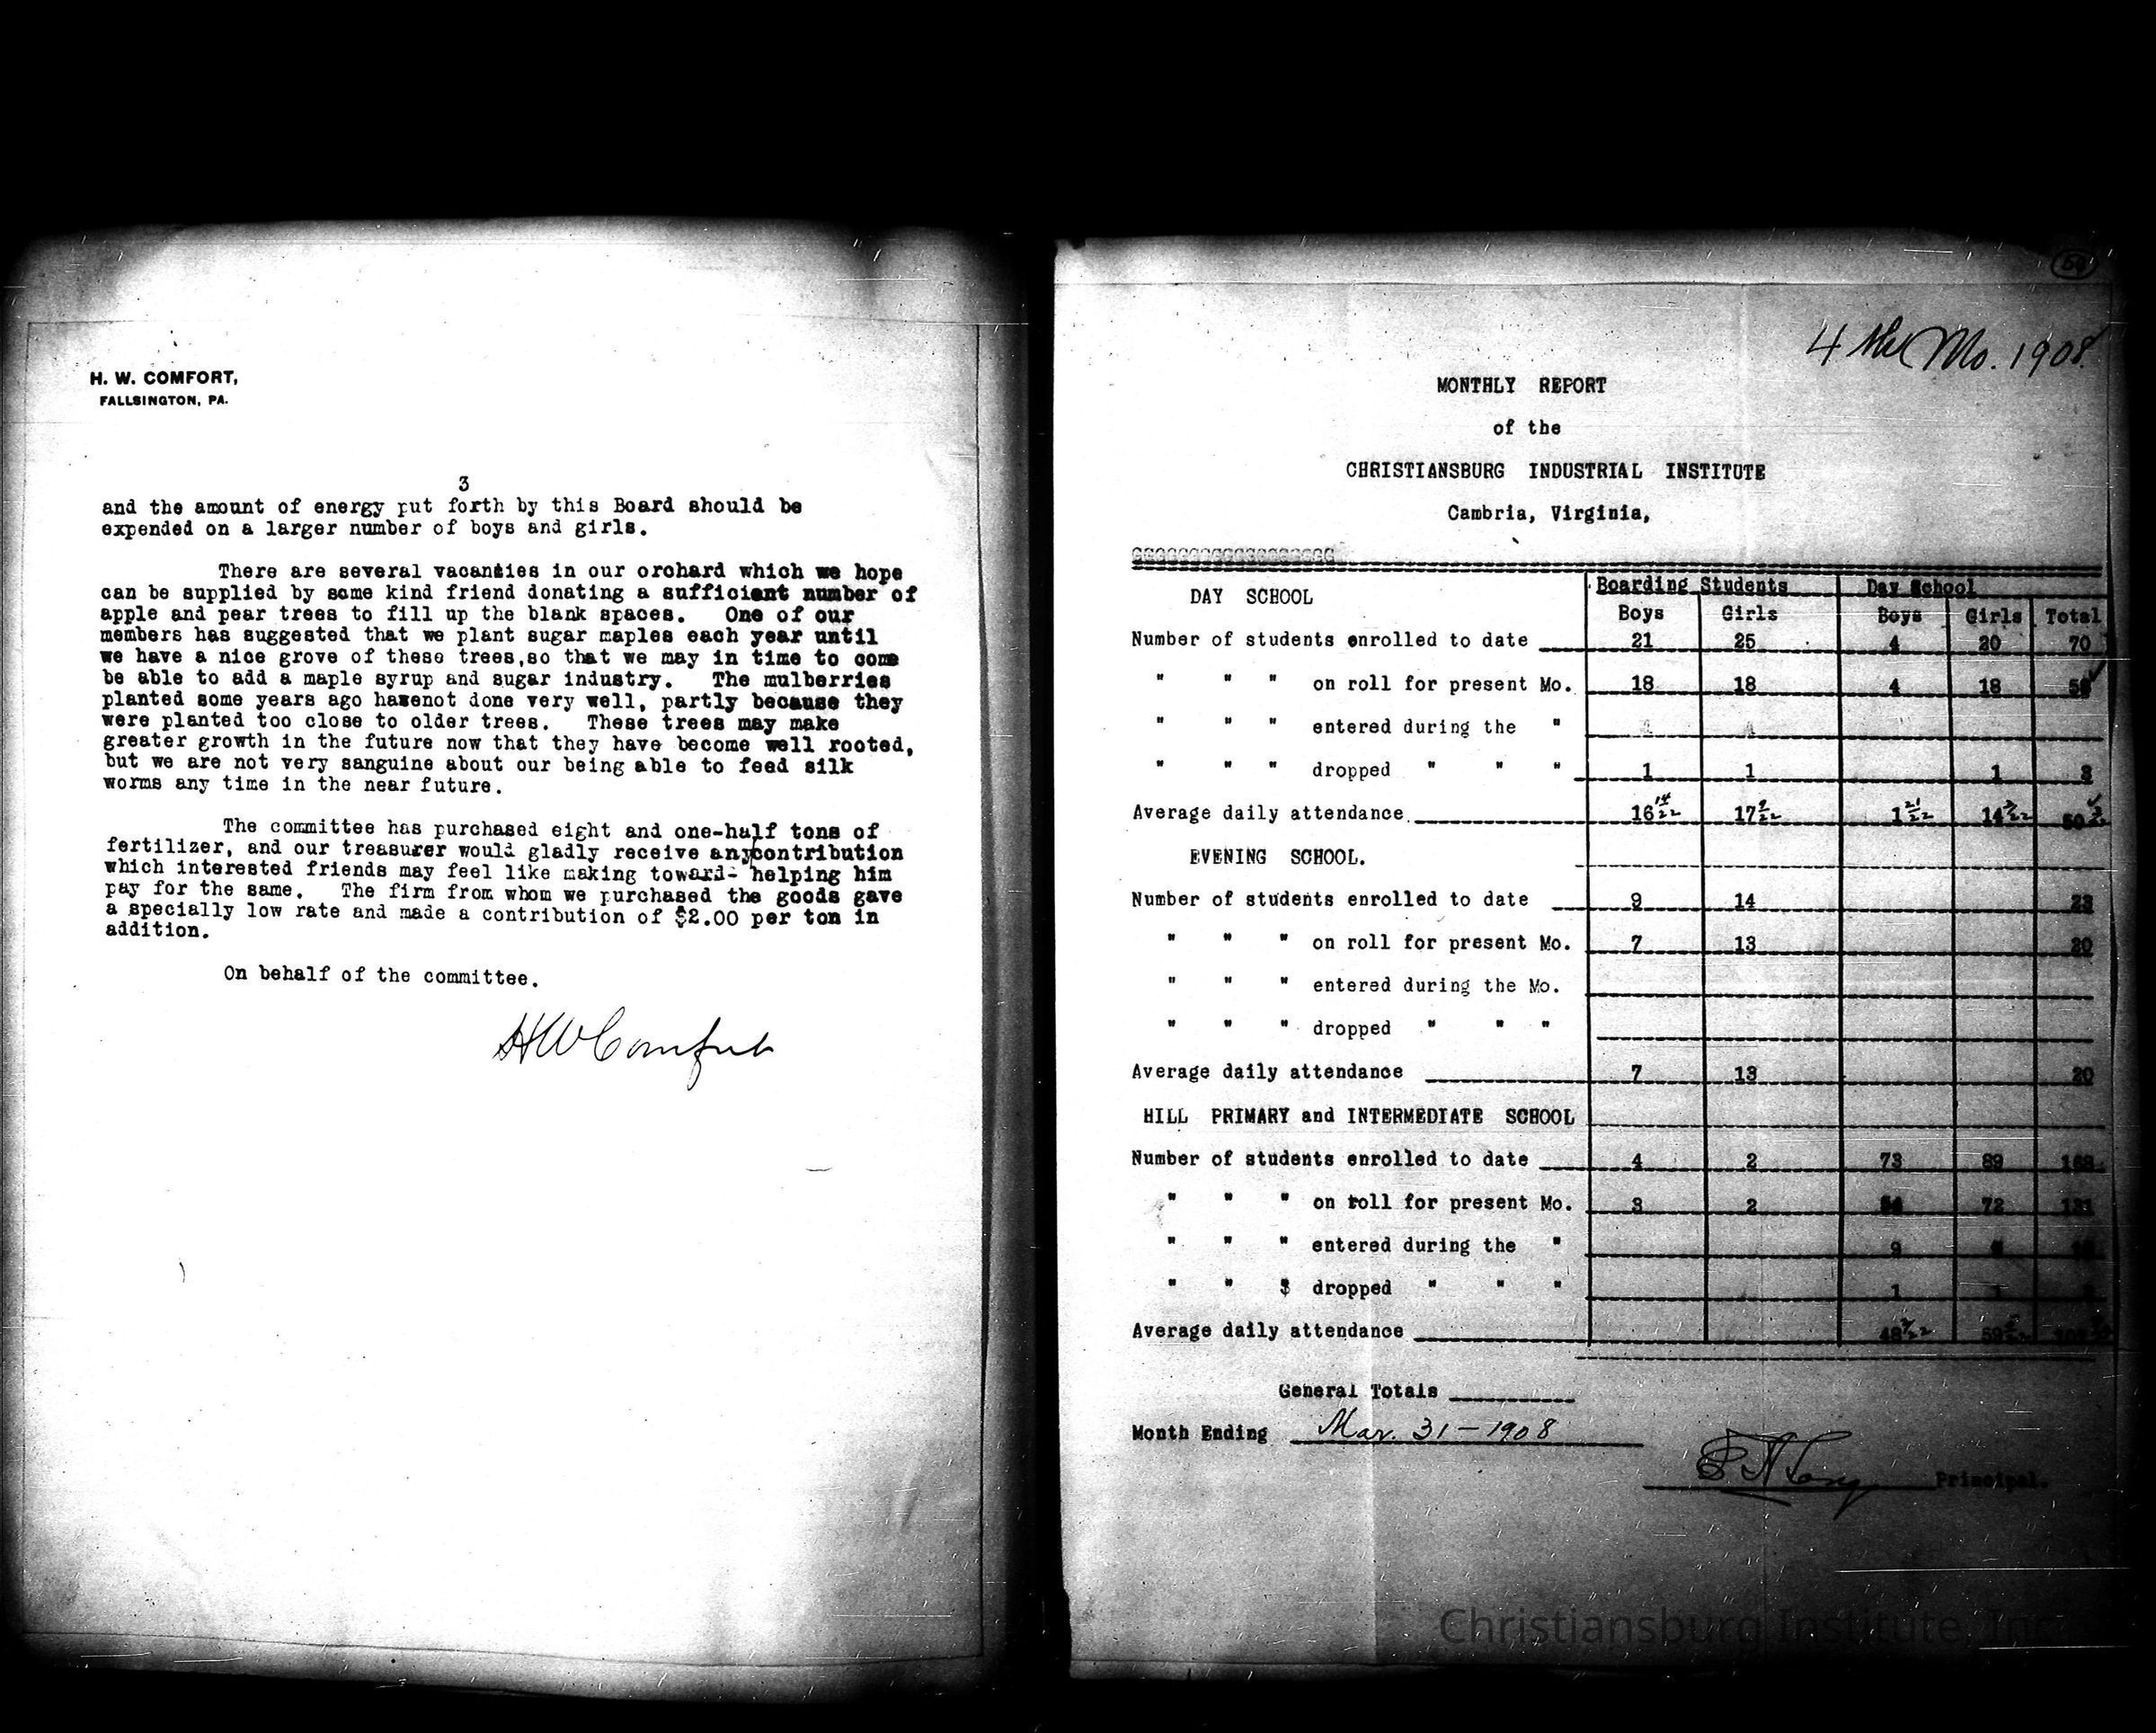 H. W. COMFORT,
FALLSINGTON, PA.
3
and the amount of energy put forth by this Board should be
expended on a larger number of boys and girls.
There are several vacancies in our orchard which we hope
can be supplied by some kind friend donating a sufficient number of
apple and pear trees to fill up the blank spaces. One of our
members has suggested that we plant sugar maples each year until
we have a nice grove of these trees,so that we may in time to come
be able to add a maple syrup and sugar industry. The mulberries
planted some years ago havenot done very well, partly because they
were planted too close to older trees. These trees may make
greater growth in the future now that they have become well rooted,
but we are not very sanguine about our being able to feed silk
worms any time in the near future.
The committee has purchased eight and one-half tons of
fertilizer, and our treasurer would gladly receive any contribution
which interested friends may feel like making toward- helping him
pay for the same. The firm from whom we purchased the goods gave
a specially low rate and made a contribution of $2.00 per ton in
addition.
On behalf of the committee.
H W Comfort
4th Mo. 1908.
MONTHLY REPORT
of the
CHRISTIANSBURG INDUSTRIAL INSTITUTE
Cambria, Virginia,
DAY SCHOOL Boarding Students Day School
Boys Girls Boys Girls Total
Number of students enrolled to date 21 25 4 20 70
" " " on roll for present Mo. 18 18 4 18
" " " entered during the "
" " " dropped " " " 1 1 1 3
Average daily attendance 16 14/22 17 9/22 1 21/22 14
EVENING SCHOOL.
Number of students enrolled to date 9 14 23
" " " on roll for present Mo. 7 13 20
" " " entered during the Mo.
" " " dropped " " "
Average daily attendance 7 13 20
HILL PRIMARY and INTERMEDIATE SCHOOL
Number of students enrolled to date 4 2 73 89 168
" " " on roll for present Mo. 3 2 54 72 131
" " " entered during the " 9
" " $ dropped " " " 1 1
Average daily attendance 48 59
General Totals
Month Ending Mar. 31-1908
Principal.
Christiansburg Institute, Inc.